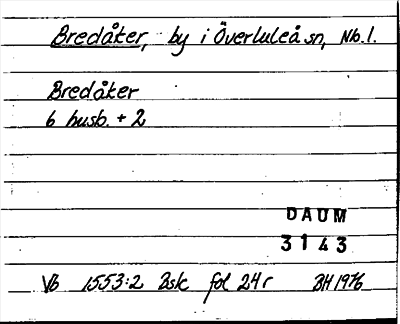 Bredåker, by i Överluleå sn, Nb.l.
Bredåker
6 husb. + 2
DAUM
3143
Vb 1553:2 Bsk fol 24r BH 1976